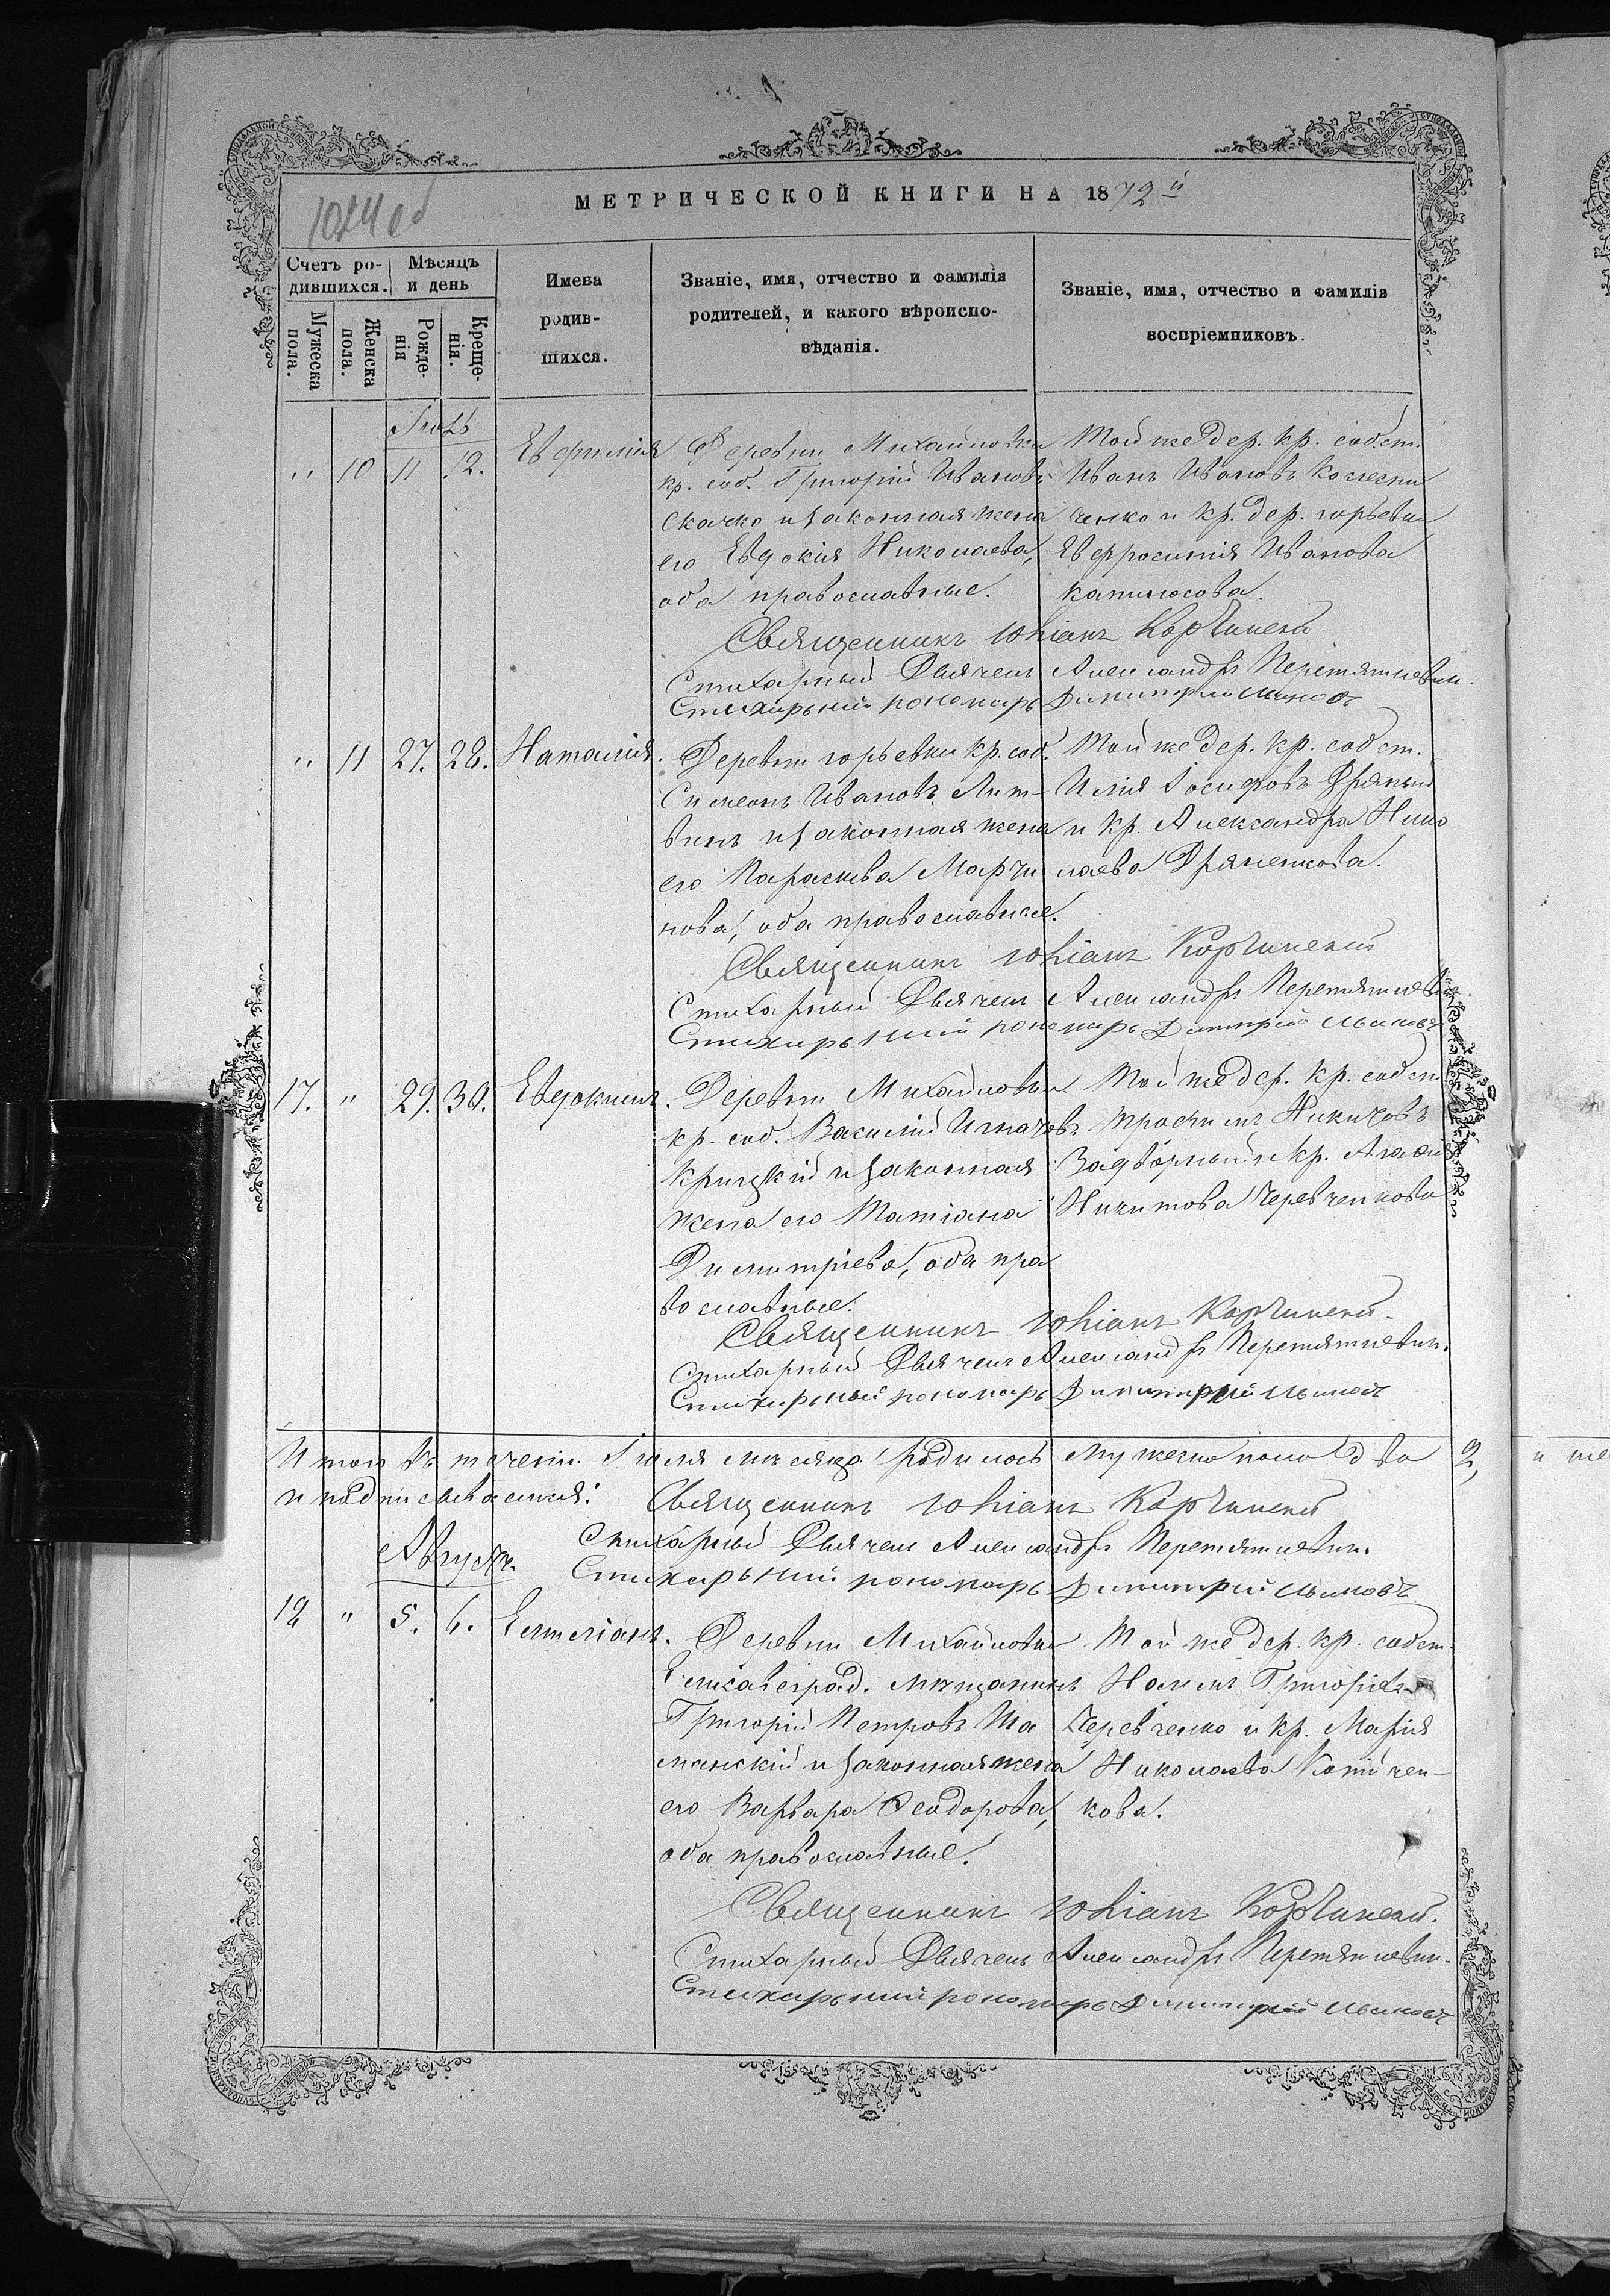 МЕТРИЧЕСКОЙ КНИГИ НА 1872й
1024 об
Счетъ ро-
дившихся.
Мужеска пола.
Женска пола.
Мѣсяцъ
и день
Рожде-
нія
Креще-
нія.
Имена
родив-
шихся.
Званіе, имя, отчество и фамилія
родителей, и какого вѣроиспо-
вѣданія.
Званіе, имя, отчество и фамилія
воспріемниковъ.
Іюль
" 10 11 12. Евфимія
Деревни Михайловки
кр. соб. Григорій Ивановъ
Скачко и законная жена
его Евдокія Николаева,
оба православные.
Той же дер. кр. собст.
Иванъ Ивановъ Колесни
ченко и кр. дер. юрьевки
Евфросинія Иванова
капиносова.
Священникъ Юліанъ Корчинскій
Стихарный Дьячекъ Александръ Перетятковичъ.
Стихарный пономарь Димитрій
" 11 27. 28. Наталія.
Деревни юрьевки кр. соб.
Симеонъ Ивановъ Лит-
винъ и законная жена
его Параскева Марти
нова, оба православные.
Той же дер. кр. собст.
Илія Іосифовъ
и кр. Александра Нико
лаева
Священникъ Юліанъ Корчинскій
Стихарный Дьячекъ Александръ Перетятковичъ.
Стихарный пономарь Димитрій
17. " 29. 30. Евдокимъ.
Деревни Михайловки
кр. соб. Василій Игнатовъ
Крицкій и законная
жена его Татіана
Димитріева, оба пра
вославные.
Той же дер. кр. собст.
Трофимъ Никитовъ
Задворный и кр. Агафія
Никитова Черевченкова
Священникъ Юліанъ Корчинскій
Стихарный Дьячекъ Александръ Перетятковичъ.
Стихарный пономарь Димитрій
Итого въ теченіи Іюля мѣсяца родилось мужеска пола два 2,
и подписываемся: Священникъ Юліанъ Корчинскій
Стихарный Дьячекъ Александръ Перетятковичъ.
Стихарный пономарь Димитрій
Августъ.
18 " 5. 6. Емиліанъ.
Деревни Михайловки
Елисаветград. мѣщанинъ
Григорій Петровъ Ша
манскій и законная жена
его Варвара Феодорова,
оба православные.
Той же дер. кр. собст.
Наумъ Григоріевъ
Черевченко и кр. Марія
Николаева
кова.
Священникъ Юліанъ Корчинскій.
Стихарный Дьячекъ Александръ Перетятковичъ.
Стихарный пономарь Димитрій